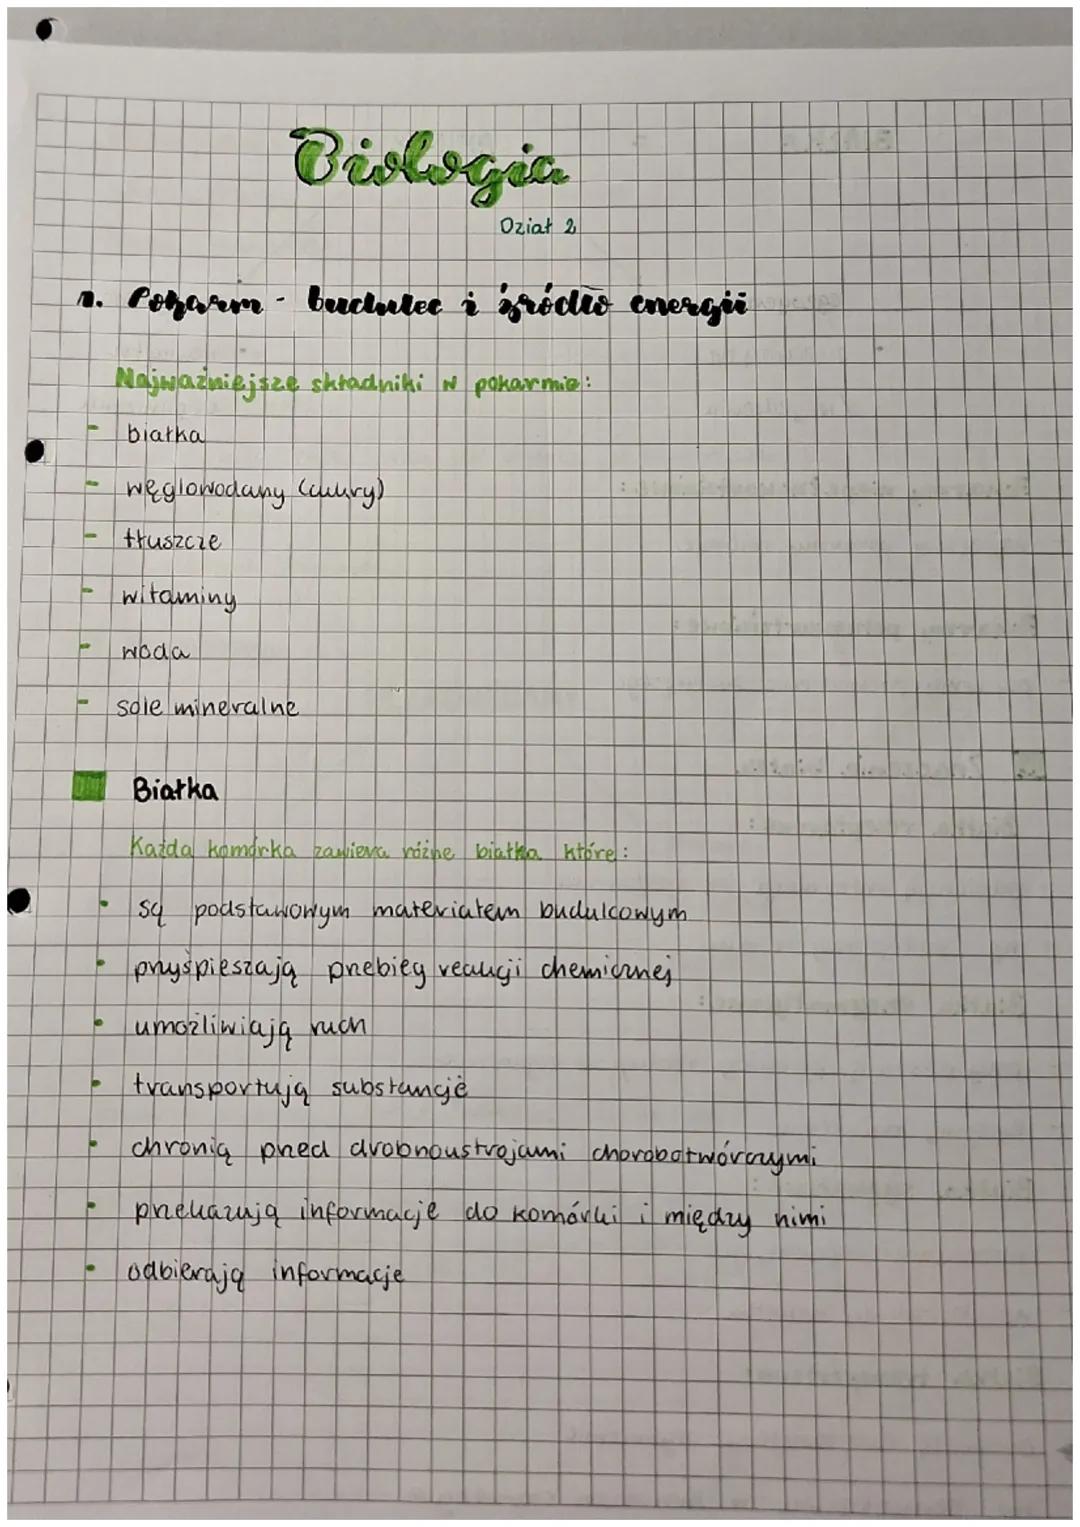 Biologia
Dział 2
1. Pokarm - budulec i źródło energii
Najważniejsze składniki w pokarmie:
- białka
- węglowodany (cukry)
- tłuszcze
- witaminy
- woda
- sole mineralne
Białka
Każda komórka zawiera różne białka które:
• są podstawowym materiałem budulcowym
• przyśpieszają przebieg reakcji chemicznej
• umożliwiają ruch
• transportują substancje
• chronią przed drobnoustrojami chorobotwórczymi
• przekazują informacje do komórki i między nimi
• odbierają informacje